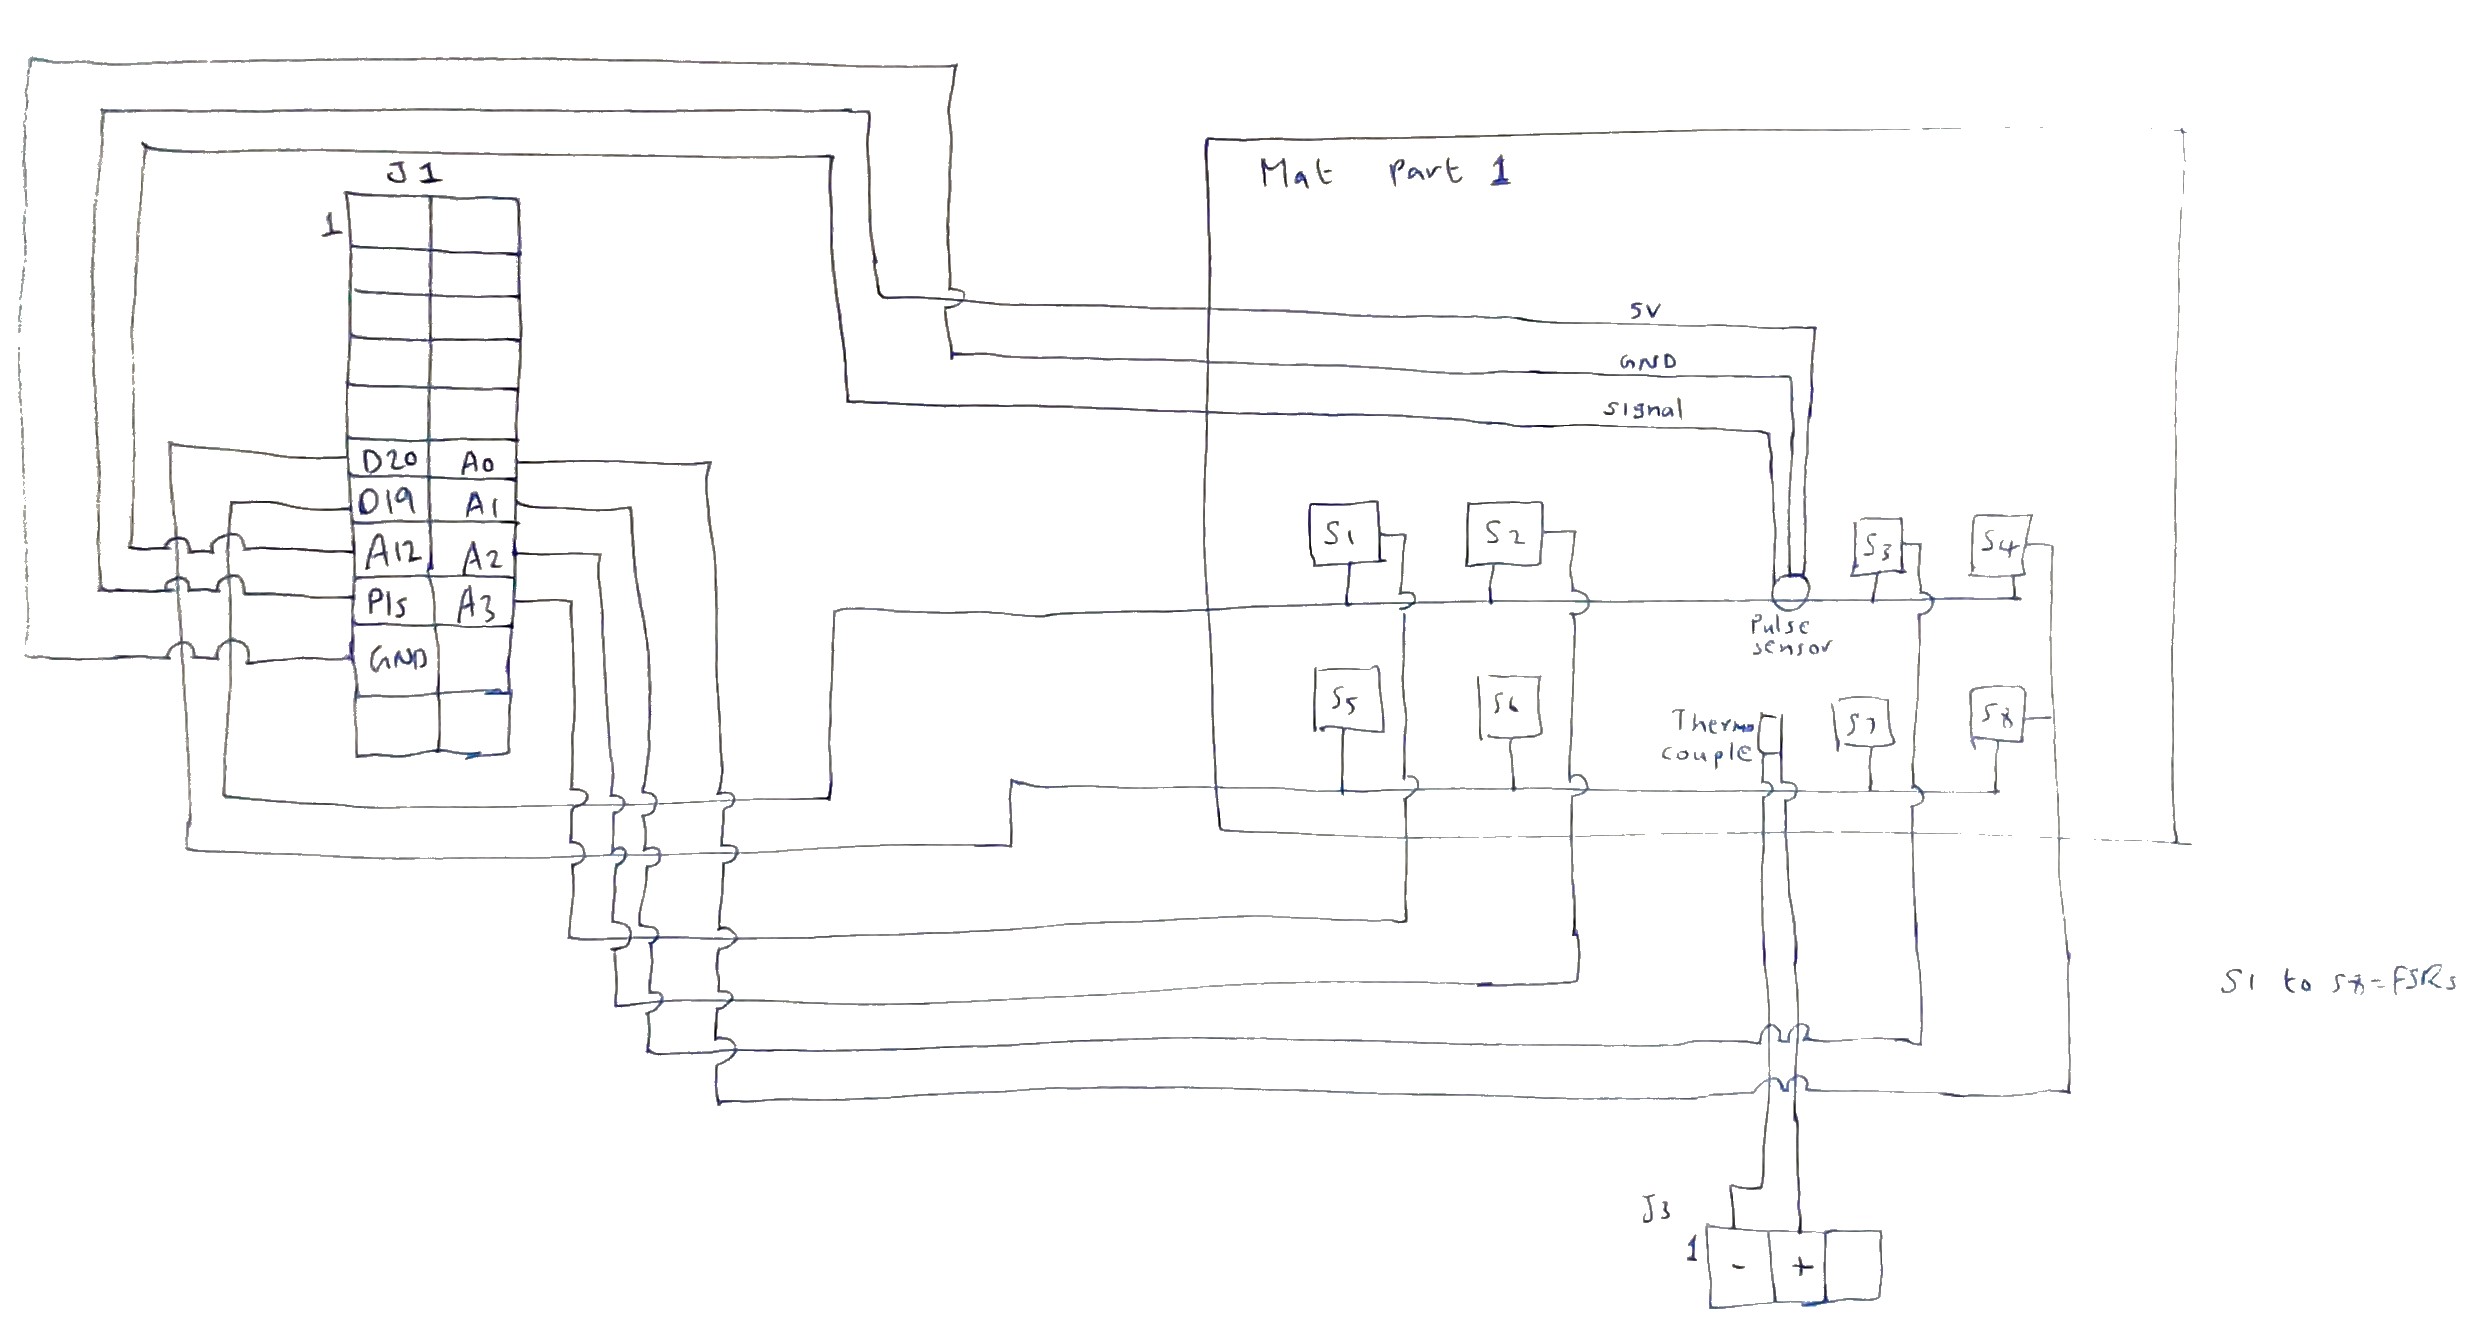 J1
1
D20 A0
D19 A1
A12 A2
P15 A3
GND
Mat Part 1
5V
GND
Signal
S1 S2 S3 S4
Pulse
sensor
S5 S6 S7 S8
Thermo
couple
S1 to S8=FSRs
J3
1 - +